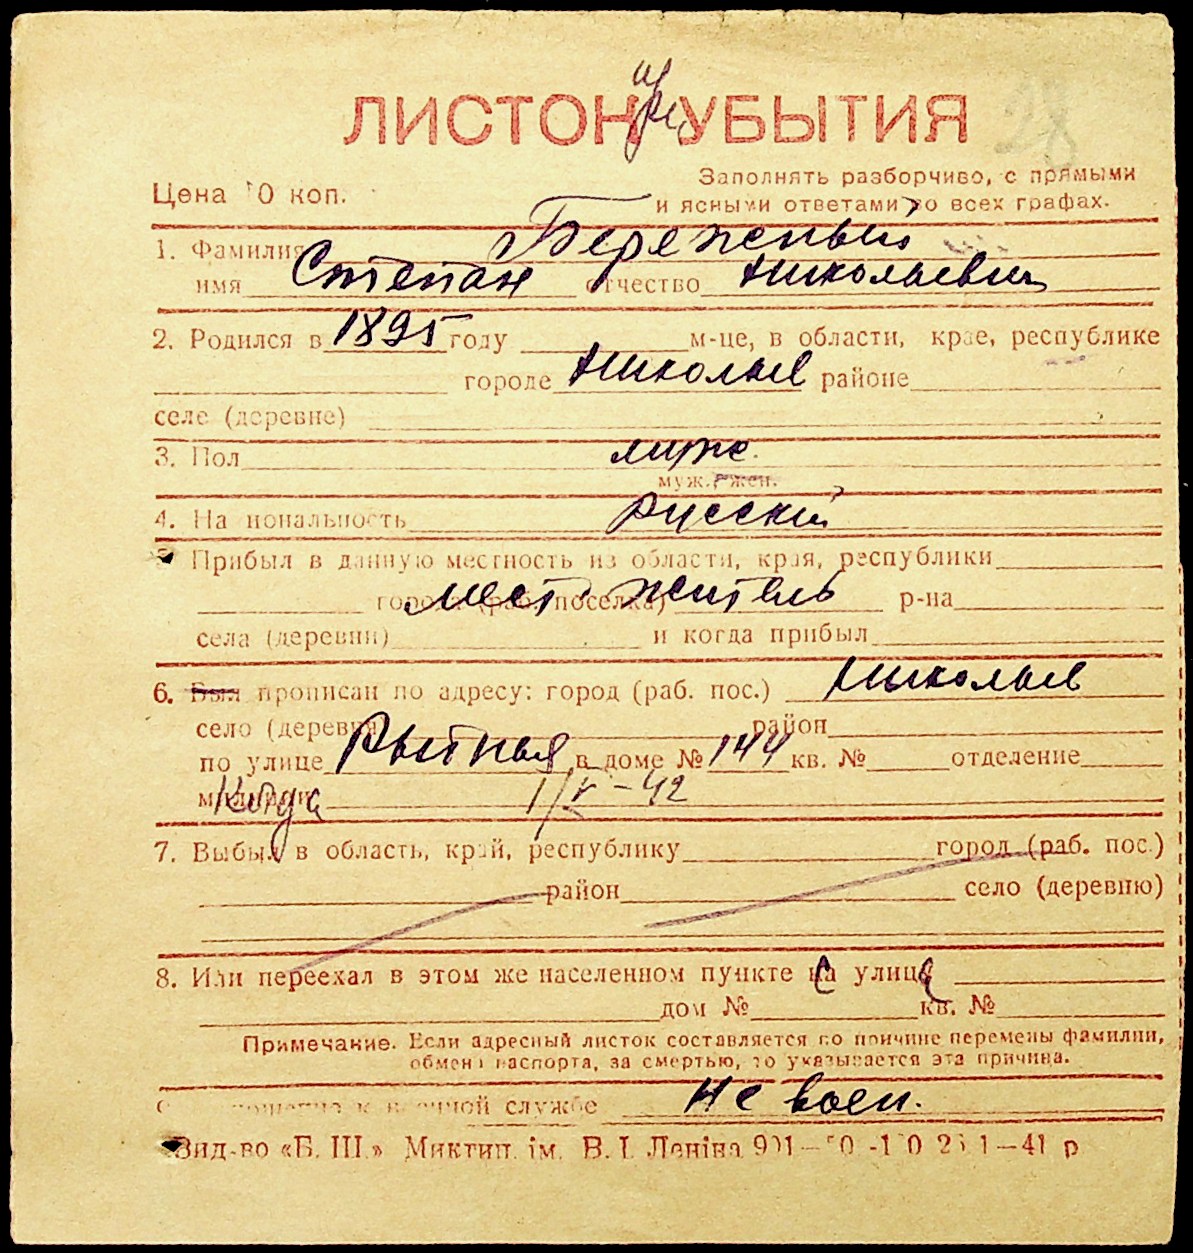 ЛИСТОК при УБЫТИЯ 28
Цена 10 коп.
Заполнять разборчиво, с прямыми
и ясными ответами во всех графах.
1. Фамилия Бережный
имя Степан отчество Николаевич
2. Родился в 1895 году м-це, в области, крае, республике
городе Николаев районе
селе (деревне)
3. Пол муже.
муж. жен.
4. Национальность Русский
5. Прибыл в данную местность из области, края, республики
города (раб. поселка) мест. житель р-на
села (деревни) и когда прибыл
6. Был прописан по адресу: город (раб. пос.) Николаев
село (деревня) район
по улице Рыбная в доме № 144 кв. № отделение
милиции Когда 1/V-42
7. Выбыл в область, край, республику город (раб. пос.)
район село (деревню)
8. Или переехал в этом же населенном пункте с улицы
дом № кв. №
Примечание. Если адресный листок составляется по причине перемены фамилии,
обмена паспорта, за смертью, то указывается эта причина.
к военной службе Не воен.
Вид-во «Б. Ш.» Миктип. ім. В. І. Леніна